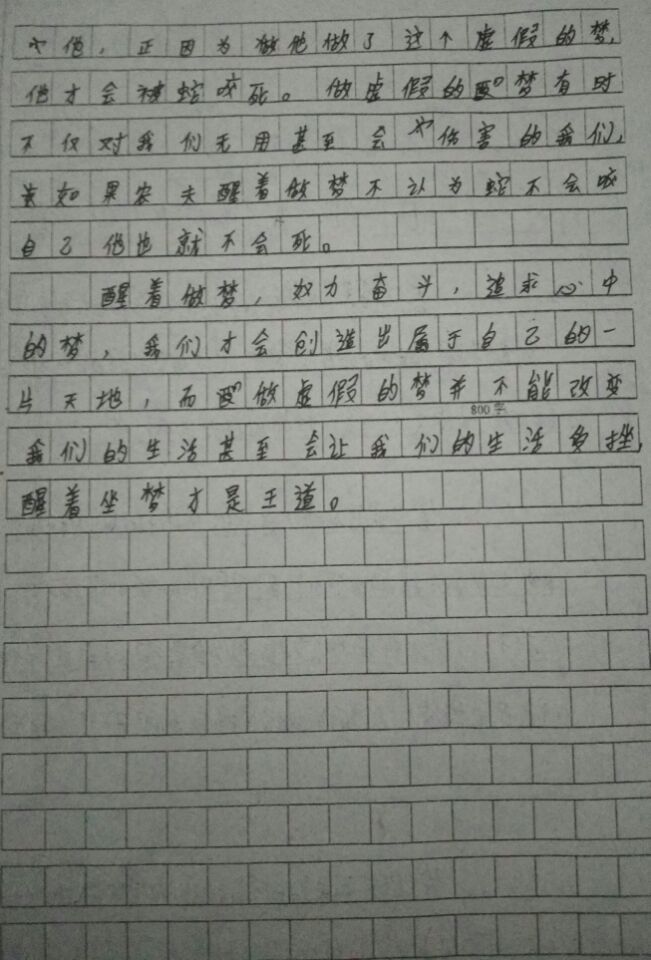 他，正因为做他做了这个虚假的梦，
他才会被蛇咬死。做虚假的梦有时
不仅对我们无用甚至会伤害的我们，
如果农夫醒着做梦不认为蛇不会咬
自己他也就不会死。
醒着做梦，努力奋斗，追求心中
的梦，我们才会创造出属于自己的一
片天地，而做虚假的梦并不能改变
800字
我们的生活甚至会让我们的生活多挫，
醒着坐梦才是王道。